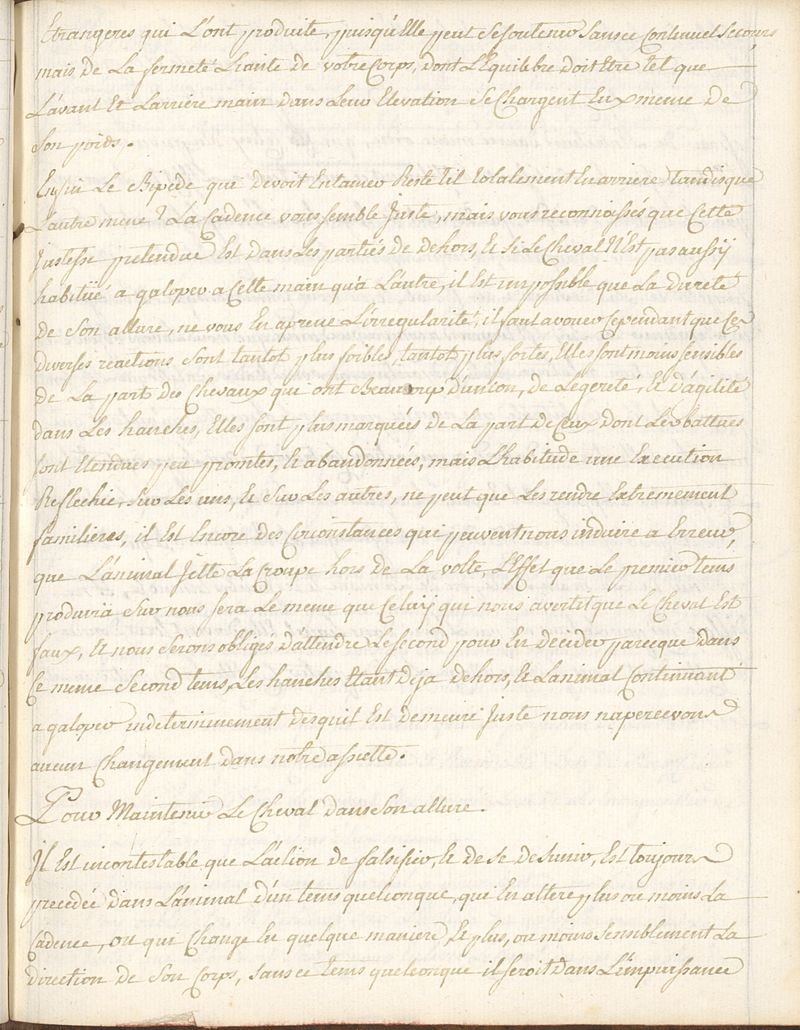 Etrangeres qui L'ont produite, puisqu'Elle peut se soutenir sans ce Continuel Secours
mais de La fermeté Liante de votre Corps, dont L'Equilibre doit Etre tel que
L'avant Et Larriere main dans Leur Elevation se Chargent Eux meme de
Son poids.
Enfin Le Bipede que devoit Entamer Reste t'il totalement En arriere tandisque
L'autre mene ? La Cadence vous semble Juste, mais vous reconnaissés que Cette
Justesse pretendue Est dans Les partiés de dehors, Et si Le Cheval N'Est pas aussÿ
habitüé a galoper a Cette main qu'a L'autre, il Est impossible que La dureté
de Son allure, ne vous En apreue L'irregularité, il faut avouer Cependant que Ces
diverses reactions sont tantot plus foibles, tantot plus fortes, Elles sont moins sensibles
de La part des Chevaux qui ont Beaucoup d'union, de Legereté, Et d'agilité
dans Les hanches, Elles sont plus marquées de La part de Ceux dont Les battues
sont Etendues peu promtes, Et abandonnées, mais L'habitude une Execution
Reflechie, sur Les uns, Et sur Les autres, ne peut que Les rendre Extremement
familieres, il Est Encore des Circonstances qui peuvent nous induire a Erreur,
que L'animal Jette La Croupe hors de La volte, L'Effet que Le premier tems
produira sur nous sera Le meme que Celuÿ qui nous avertit que Le Cheval Est
faux, Et nous serons obligés d'attendre Le second pour En decider parceque dans
Ce meme second tems, Les hanches Etant deja dehors, Et L'animal Continuant
a galoper indeterminement des quil Est demeuré Juste nous napercevons
aucun Changement dans notre assiette.
Pour Maintenir Le Cheval dans Son allure.
Il Est incontestable que L'action de falsifier, Et de se desunir, Est toujours
precedée dans L'animal d'un tems quelconque, qui En altere plus ou moins La
Cadence, ou qui Change En quelque maniere Et plus, ou moins sensiblement La
direction de Son Corps, sans ce tems quelconque il seroit dans L'impuissance